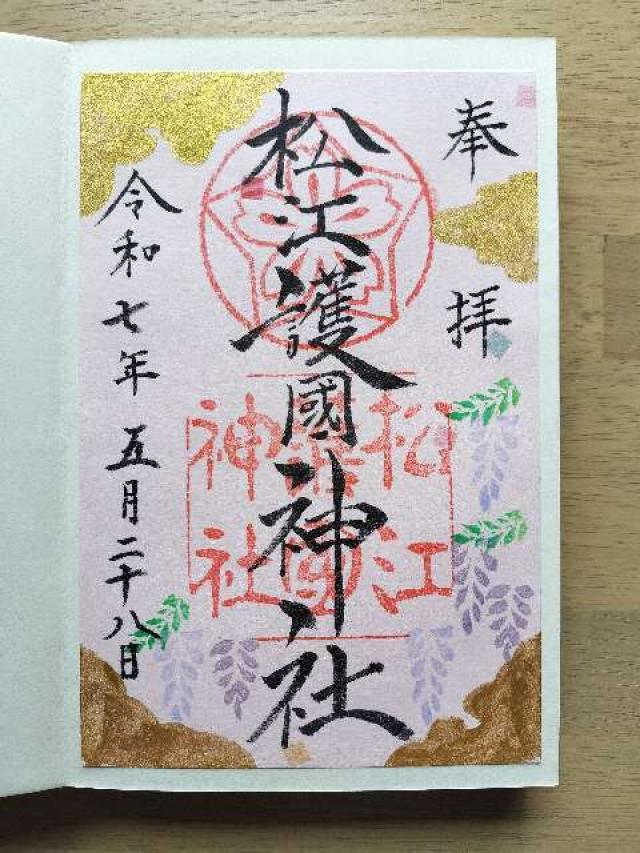 奉拝
松江護國神社
松江護國神社
令和七年五月二十八日